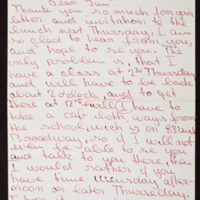 Dear Jim
Thank you so much for your
letter and invitation to the
lunch next Thursday, I am
so glad to hear from you,
and hope to see you. The
only problem is, that I
have a class at Thursday
and will have to be back
about 2 o'clock, and to get
there at 12 I have to
take a cab both ways from
the school, wich is on 43 and
Broadway, so if I will not
even be able to see you
and talk to you there, than
I would rather if you
have time Thursday after-
noon or later Thursday.